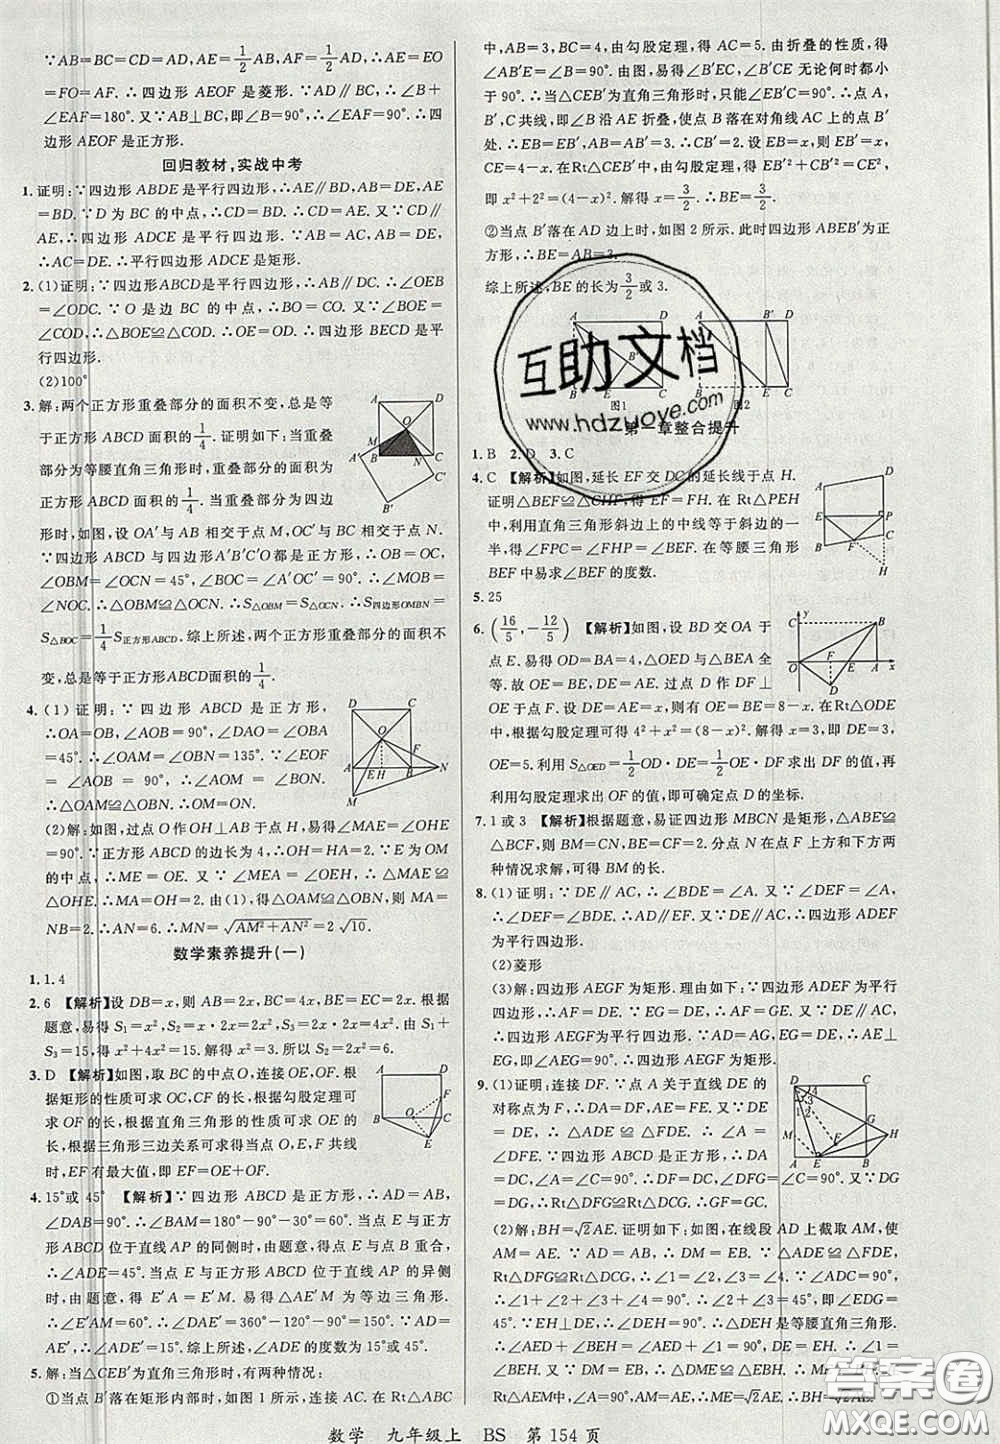 ∵AB=BC=CD=AD,AE=1/2AB,AF=1/2AD,∴AE=EO
=FO=AF.∴四边形AEOF是菱形.∵AB∥AD,∴∠B+
∠EAF=180°.又∵AB⊥BC,即∠B=90°,∴∠EAF=90°.∴四
边形AEOF是正方形.
回归教材,实战中考
1.证明:∵四边形ABDE是平行四边形,∴AE∥BD,AB=DE,AE
=BD.∵D为BC的中点,∴CD=BD.∴CD=AE.又∵CD∥
AE,∴四边形ADCE是平行四边形.∵AB=AC,AB=DE,
∴AC=DE.∴平行四边形ADCE是矩形.
2.(1)证明:∵四边形ABCD是平行四边形,∴AB∥DC.∴∠OEB
=∠ODC.又∵O为BC的中点,∴BO=CO.又∵∠BOE=
∠COD,∴△BOE≌△COD.∴OE=OD.∴四边形BECD是平
行四边形.
(2)100°
3.解:两个正方形重叠部分的面积不变,总是等
于正方形ABCD面积的1/4.证明如下:当重叠
部分为等腰直角三角形时,重叠部分的面积为
正方形ABCD面积的1/4;当重叠部分为四边
形时,如图,设OA′与AB相交于点M,OC′与BC相交于点N.
∵四边形ABCD与四边形A′B′C′O都是正方形,∴OB=OC,
∠OBM=∠OCN=45°,∠BOC=∠A′OC′=90°.∴∠MOB=
∠NOC.∴△OBM≌△OCN.∴S△OBM=S△OCN.∴S四边形OMBN=
S△BOC=1/4S正方形ABCD.综上所述,两个正方形重叠部分的面积不
变,总是等于正方形ABCD面积的1/4.
4.(1)证明:∵四边形ABCD是正方形,
∴OA=OB,∠AOB=90°,∠DAO=∠OBA
=45°.∴∠OAM=∠OBN=135°.∵∠EOF
=∠AOB=90°,∴∠AOM=∠BON.
∴△OAM≌△OBN.∴OM=ON.
(2)解:如图,过点O作OH⊥AD于点H,易得∠MAE=∠OHE
=90°.∵正方形ABCD的边长为4,∴OH=HA=2.∵E为OM
的中点,∴ME=OE.又∵∠MEA=∠OEH,∴△MAE≌
△OHE.∴MA=OH=2.由(1),得△OAM≌△OBN,则AM=BN
=2.∴AN=6.∴MN=√(AM²+AN²)=2√10.
数学素养提升(一)
1.1.4
2.6 【解析】设DB=x,则AB=2x,BC=4x,BE=EC=2x.根据
题意,易得S₁=x²,S₂=x·2x=2x²,S₃=2x·2x=4x².由S₁+
S₃=15,得x²+4x²=15.解得x²=3.所以S₂=2x²=6.
3.D 【解析】如图,取BC的中点O,连接OE,OF.根
据矩形的性质可求OC,CF的长,根据勾股定理可
求OF的长,根据直角三角形的性质可求OE的
长,根据三角形三边关系可求得当点O,E,F共线
时,EF有最大值,即EF=OE+OF.
4.15°或45° 【解析】∵四边形ABCD是正方形,∴AD=AB,
∠DAB=90°.∴∠BAM=180°-90°-30°=60°.当点E与正方
形ABCD位于直线AP的同侧时,由题意,得点E与点B重合,
∴∠ADE=45°.当点E与正方形ABCD位于直线AP的异侧
时,由题意,得E′A=E′M.易得△AE′M为等边三角形,
∴∠E′AM=60°.∴∠DAE′=360°-120°-90°=150°.∵AD=
AE′,∴∠ADE′=15°.综上所述,∠ADE的度数为15°或45°.
5.解:当△CEB′为直角三角形时,有两种情况:
①当点B′落在矩形内部时,如图1所示,连接AC.在Rt△ABC
中,AB=3,BC=4,由勾股定理,得AC=5.由折叠的性质,得
∠AB′E=∠B=90°.由图,易得∠B′EC,∠B′CE无论何时都小
于90°.∴当△CEB′为直角三角形时,只能∠EB′C=90°.∴点A,
B′,C共线,即∠B沿AE折叠,使点B落在对角线AC上的点B′
处.∴EB=EB′,AB=AB′=3.∴CB′=5-3=2.设BE=EB′=
x,则CE=4-x.在Rt△CEB′中,由勾股定理,得EB′²+CB′²=CE²,
即x²+2²=(4-x)².解得x=3/2.∴BE=3/2.
②当点B′落在AD边上时,如图2所示.此时四边形ABEB′为正
方形,∴BE=AB=3.
综上所述,BE的长为3/2或3.
图1
图2
第一章整合提升
1.B 2.D 3.C
4.C 【解析】如图,延长EF交DC的延长线于点H.
证明△BEF≌△CHF,得EF=FH.在Rt△PEH
中,利用直角三角形斜边上的中线等于斜边的一
半,得∠FPC=∠FHP=∠BEF.在等腰三角形
BEF中易求∠BEF的度数.
5.25
6.(16/5,-12/5) 【解析】如图,设BD交OA于
点E.易得OD=BA=4,△ODE与△BEA全
等.故OE=BE.如图,过点D作DF⊥
OE于点F.设DE=x,则有OE=BE=8-x.在Rt△ODE
中,根据勾股定理可得4²+x²=(8-x)².解得x=3.即DE=3,
OE=5.利用S△OED=1/2OD·DE=1/2OE·DF求出DF的值,再
利用勾股定理求出OF的值,即可确定点D的坐标.
7.1或3 【解析】根据题意,易证四边形MBCN是矩形,△ABE≌
△BCF,则BM=CN,BE=CF=2.分点N在点F上方和下方
两种情况求解,可得BM的长.
8.(1)证明:∵DE∥AC,∴∠BDE=∠A.又∵∠DEF=∠A,
∴∠DEF=∠BDE.∴AD∥EF.又∵DE∥AC,∴四边形ADEF
为平行四边形.
(2)菱形
(3)解:四边形AEGF为矩形.理由如下:由(1),得四边形ADEF
为平行四边形,∴AF∥DE,AF=DE.∵EG=DE,∴AF=EG.
∴四边形AEGF为平行四边形.又∵AD=AG,EG=DE,
∴AE⊥EG.∴∠AEG=90°.∴四边形AEGF为矩形.
9.(1)证明:连接DF.∵点A关于直线DE
的对称点为F,∴DA=DF,AE=FE.又∵DE
=DE,∴△ADE≌△FDE.∴∠A=
∠DFE.∵四边形ABCD是正方形,∴∠A
=∠C=90°,AD=CD.∴∠DFE=∠A=
90°.∴∠DFG=∠C=90°,DF=DC.又∵DG
=DG,∴Rt△DFG≌Rt△DCG.∴GF=GC.
(2)解:BH=√2AE.证明如下:如图,在线段AD上截取AM,使
AM=AE.∵AD=AB,∴DM=BE.由(1),得△DAE≌△DFE,
Rt△DFG≌Rt△DCG,∴∠1=∠2,∠3=∠4.∵∠ADC=90°,
∴∠1+∠2+∠3+∠4=90°.∴∠2+∠3=45°,即∠EDG=
45°.∵EH⊥DE,∴∠DEH=90°.∴△DEH是等腰直角三角形.
∴∠AED+∠BEH=∠AED+∠1=90°,DE=EH.∴∠1=
∠BEH.又∵DM=EB,∴△DME≌△EBH.∴EM=HB.在
Rt△AEM中,∠A=90°,AM=AE,∴EM=√2AE.∴BH=√2AE.
数学 九年级上 BS 第154页
互助文档
www.hdzuoye.com
答案圈
MXQE.COM